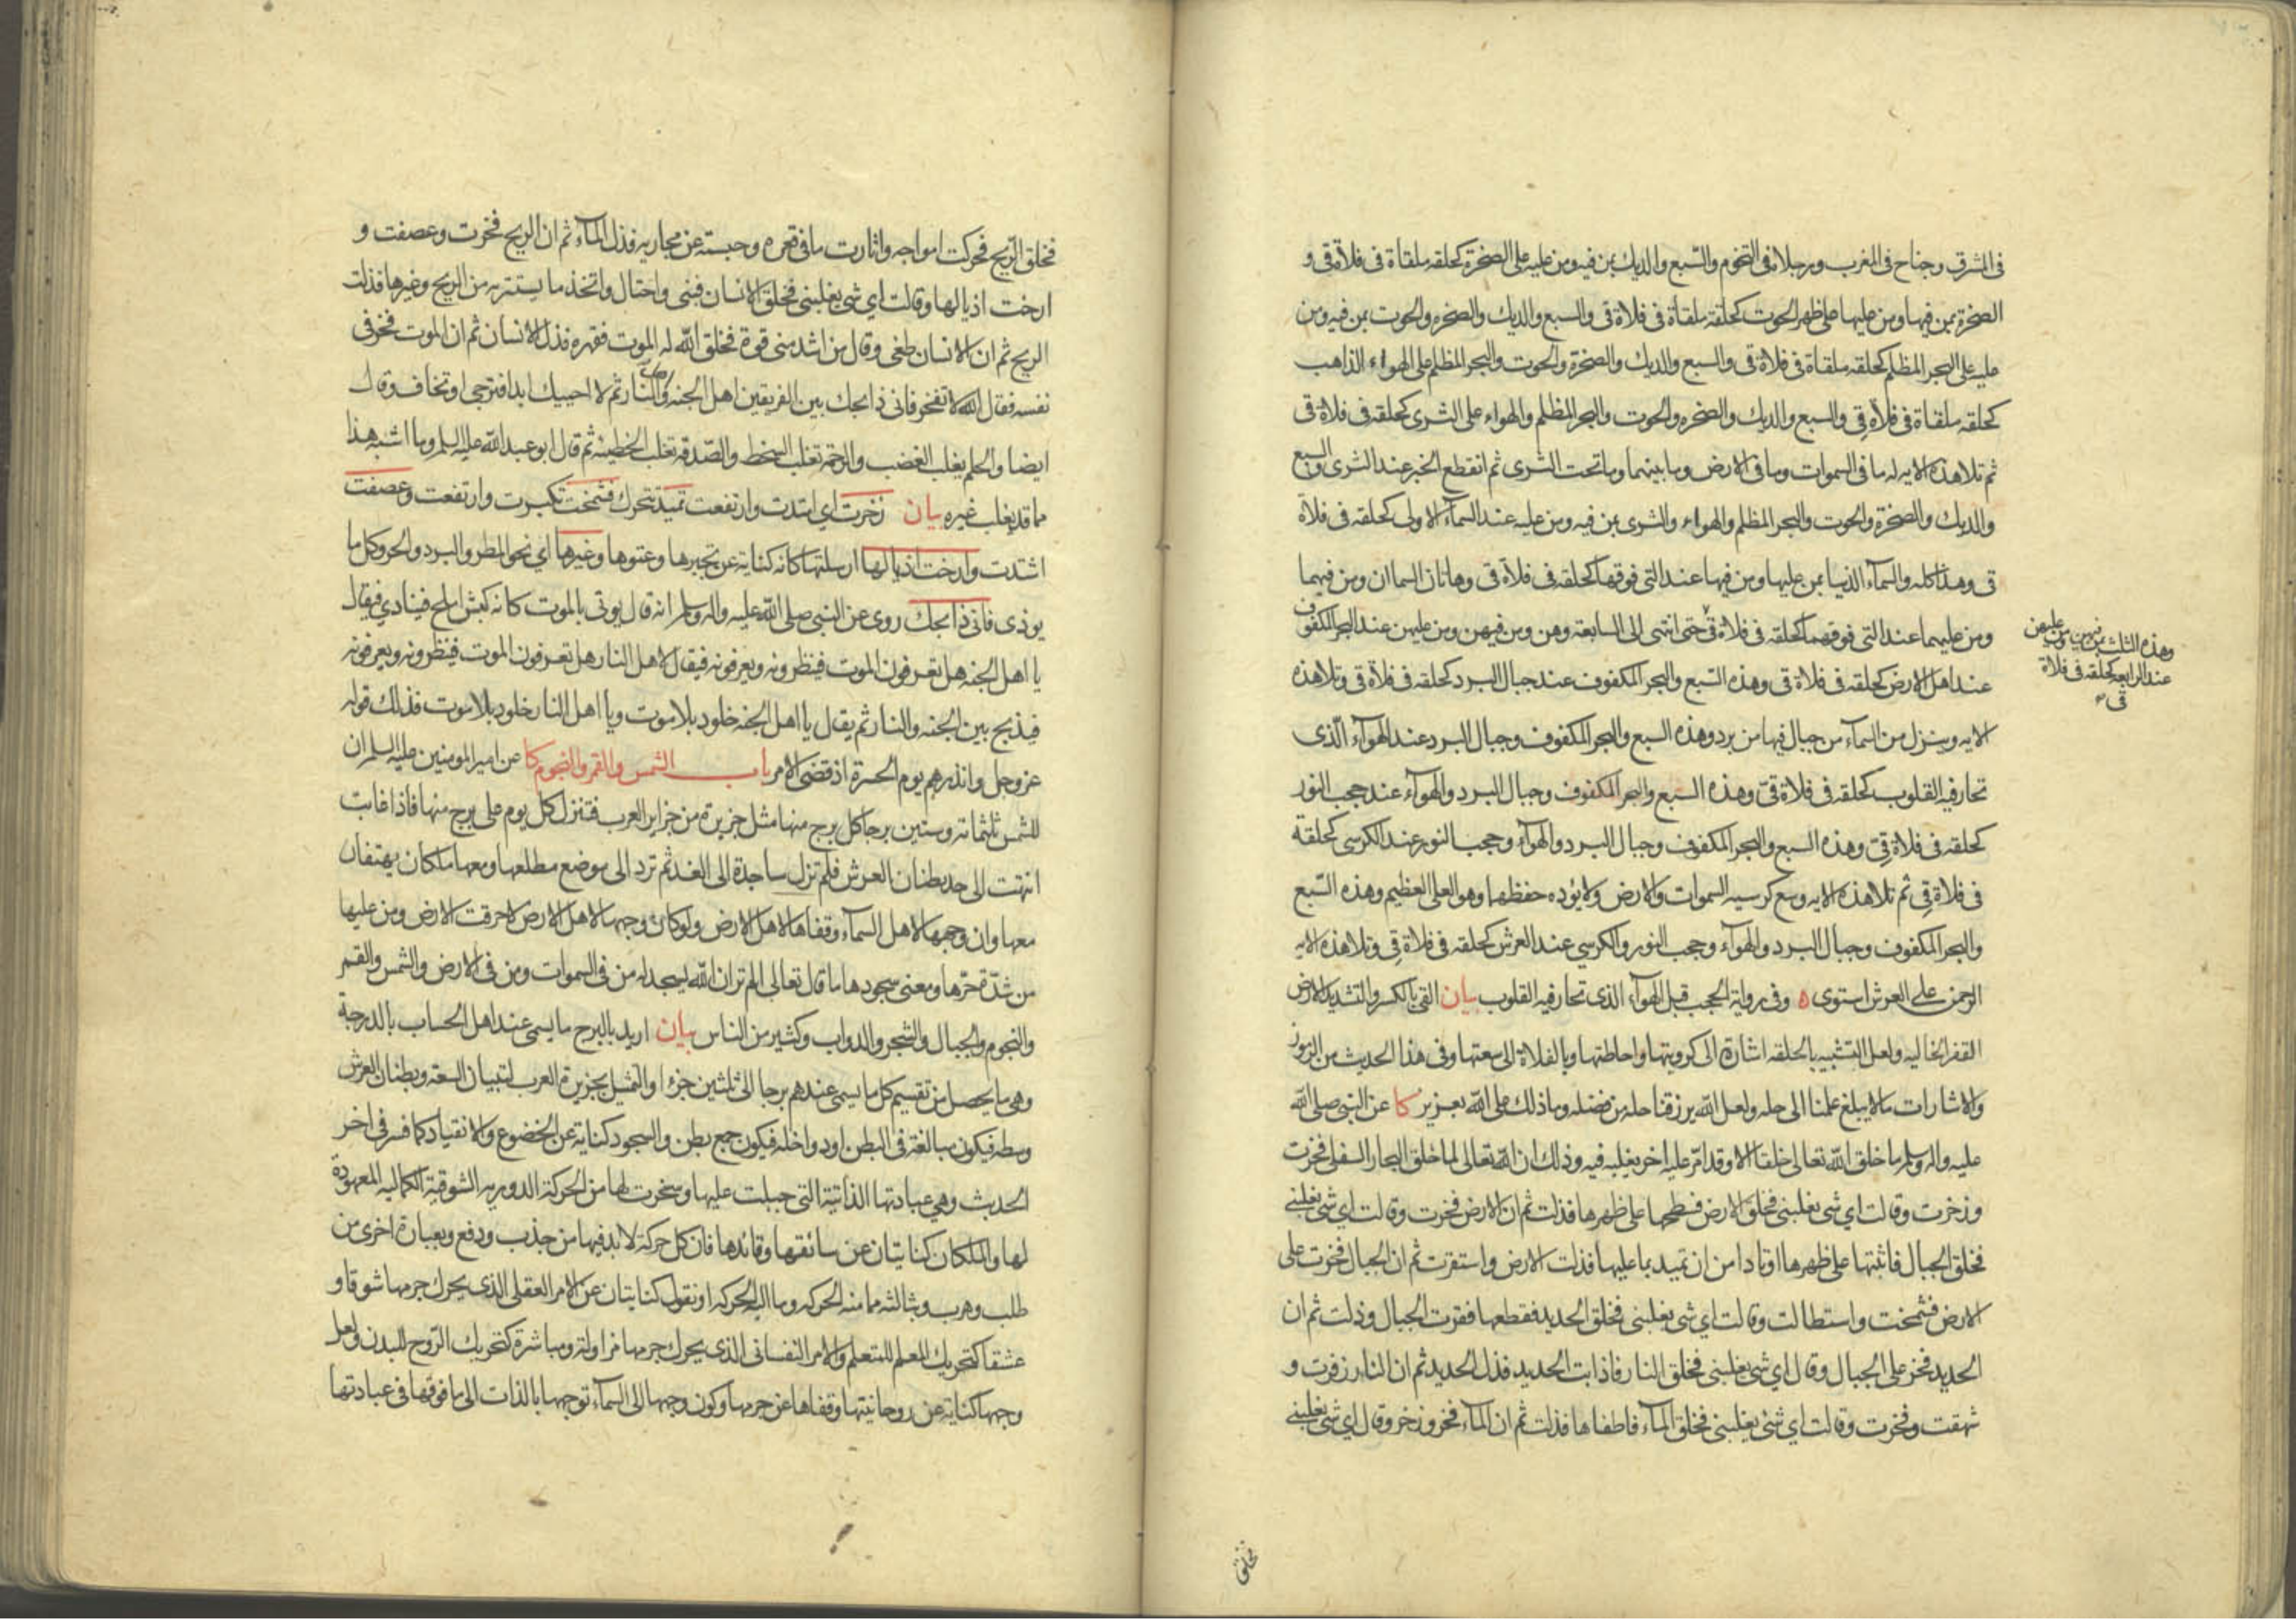 فى المشرق وجناح فى المغرب ورجلاه فى التخوم والسّبع والديك بمن فيه ومن عليه على الصخرة كحلقه ملقاة فى فلاة قى و
الصخرة بمن فيها ومن عليها على ظهر الحوت كحلقه ملقاة فى فلاة قى والسبع والديك والصخره والحوت بمن فيه ومن
عليه على البحر المظلم كحلقه ملقاة فى فلاة قى والسبع والديك والصخرة والحوت والبحر المظلم على الهواء الذاهب
كحلقه ملقاة فى فلاة قى والسبع والديك والصخره والحوت والبحر المظلم والهواء على الثرى كحلقه فى فلاة قى
ثم تلا هذه الايه له ما فى السموات وما فى الارض وما بينهما وما تحت الثرى ثم انقطع الخبر عند الثرى والسبع
والديك والصخرة والحوت والبحر المظلم والهواء والثرى بمن فيه ومن عليه عند السمآء الاولى كحلقه فى فلاة
قى وهذا كله والسمآء الدنيا بمن عليها ومن فيها عند التى فوقها كحلقه فى فلاة قى وهاتان السماان ومن فيهما
ومن عليهما عند التى فوقهما كحلقه فى فلاة قى حتى انتهى الى السابعة وهن ومن فيهن ومن عليهن عند البحر المكفوف
وهذه الثلث بمن فيهن ومن عليهن
عند الرابعه كحلقه فى فلاة
قى
عند اهل الارض كحلقه فى فلاة قى وهذه السّبع والبحر المكفوف عند جبال البرد كحلقه فى فلاة قى وتلا هذه
الايه وينزل من السمآء من جبال فيها من برد وهذه السبع والبحر المكفوف وجبال البرد عند الهوآء الذى
تحار فيه القلوب كحلقه فى فلاة قى وهذه السبع والبحر المكفوف وجبال البرد والهوآء عند حجب النور
كحلقه فى فلاة قى وهذه السبع والبحر المكفوف وجبال البرد والهوآء وحجب النور عند الكرسى كحلقة
فى فلاة قى ثم تلا هذه الايه وسع كرسيه السموات والارض ولا يؤده حفظهما وهو العلى العظيم وهذه السّبع
والبحر المكفوف وجبال البرد والهوآء وحجب النور والكرسي عند العرش كحلقه فى فلاة قى وتلا هذه الايه
الرحمن على العرش استوى ه وفى رواية الحجب قبل الهوآء الذى تحار فيه القلوب بيان القى بالكسر والتشديد الارض
القفر الخاليه ولعل التشبيه بالحلقه اشارة الى كرويتها واحاطتها وبالفلاة الى سعتها وفى هذا الحديث من الرموز
والاشارات ما لا يبلغ علمنا الى حله ولعل الله يرزقنا حله من فضله وما ذلك على الله بعزيز كا عن النبى صلى الله
عليه واله وسلم ما خلق الله تعالى خلقا الا وقد امّر عليه اخر يغلبه فيه وذلك ان الله تعالى لما خلق البحار السفلى فخرت
وزخرت وقالت اي شى يغلبنى فخلق الارض فسطحها على ظهرها فذلت ثم ان الارض فخرت وقالت اي شى يغلبنى
فخلق الجبال فاثبتها على ظهرها اوتادا من ان تميد بما عليها فذلت الارض واستقرت ثم ان الجبال فخرت على
الارض فشمخت واستطالت وقالت اي شى يغلبنى فخلق الحديد فقطعها فقرت الجبال وذلت ثم ان
الحديد فخر على الجبال وقال اي شى يغلبنى فخلق النار فاذابت الحديد فذل الحديد ثم ان النار زفرت و
شهقت وفخرت وقالت اي شئ يغلبنى فخلق المآء فاطفاها فذلت ثم ان المآء فخر وزخر وقال اي شئ يغلبنى
فخلق
فخلق الريح فحركت امواجه واثارت ما فى قعره وحبسته عن مجاريه فذل المآء ثم ان الريح فخرت وعصفت و
ارخت اذيالها وقالت اي شى يغلبنى فخلق الانسان فبنى واحتال واتخذ ما يستتر به من الريح وغيرها فذلت
الريح ثم ان الانسان طغى وقال من اشد منى قوة فخلق الله له الموت فقهره فذل الانسان ثم ان الموت فخر فى
نفسه فقال الله لا تفخر فانى ذابحك بين الفريقين اهل الجنه واهل النار ثم لا احييك ابدا فترجى او تخاف وقال
ايضا والحلم يغلب الغضب والرحمة تغلب السخط والصّدقة تغلب الخطيئة ثم قال ابو عبد الله عليه السلم وما اشبه هذا
مما قد يغلب غيره بيان زخرت اي امتدت وارتفعت تميد تتحرك فشمخت تكبرت وارتفعت وعصفت
اشتدت وارخت اذيالها ارسلتها كانه كناية عن تجبرها وعتوها وغيرها اي نحو المطر والبرد والحر وكل ما
يوذى فانى ذابحك روى عن النبى صلى الله عليه واله وسلم انه قال يوتى بالموت كانه كبش املح فينادي فيقال
يا اهل الجنه هل تعرفون الموت فينظرونه ويعرفونه فيقال لاهل النار هل تعرفون الموت فينظرونه ويعرفونه
فيذبح بين الجنه والنار ثم يقال يا اهل الجنه خلود بلا موت ويا اهل النار خلود بلا موت فذلك قوله
عز وجل وانذرهم يوم الحسرة اذ قضى الامر باب الشمس والقمر والنجوم كا عن امير المومنين عليه السلم ان
للشمس ثلثمائة وستين برجا كل برج منها مثل جزيرة من جزاير العرب فتنزل كل يوم على برج منها فاذا غابت
انتهت الى حد بطنان العرش فلم تزل ساجدة الى الغد ثم ترد الى موضع مطلعها ومعها ملكان يهتفان
معها وان وجهها لاهل السمآء وقفاها لاهل الارض ولو كان وجهها لاهل الارض لاحرقت الارض ومن عليها
من شدّة حرّها ومعنى سجودها ما قال تعالى الم تر ان الله يسجد له من فى السموات ومن فى الارض والشمس والقمر
والنجوم والجبال والشجر والدواب وكثير من الناس بيان اريد بالبرج ما يسمى عند اهل الحساب بالدرجة
وهى ما يحصل من تقسيم كل ما يسمى عندهم برجا الى ثلثين جزءا والتمثيل بجزيرة العرب لتبيان السعة وبطنان العرش
وسطه فيكون مبالغة فى البطن او دواخله فيكون جمع بطن والسجود كناية عن الخضوع والانقياد كما فسر فى اخر
الحديث وهي عبادتها الذاتية التى جبلت عليها وسخرت لها من الحركة الدوريه الشوقية الكماليه المعهودة
لها والملكان كنايتان عن سائقها وقائدها فان كل حركة لا بد فيها من جذب ودفع وبعبارة اخرى من
طلب وهرب وبثالثه مما منه الحركه وما اليه الحركه او نقول كنايتان عن الامر العقلى الذى يحرك جرمها شوقا و
عشقا كتحريك المعلم للمتعلم والامر النفسانى الذى يحرك جرمها مزاولة ومباشرة كتحريك الرّوح للبدن ولعل
وجهها كناية عن روحانيتها وقفاها عن جرمها وكون وجهها الى السمآء توجهها بالذات الى ما فوقها فى عبادتها